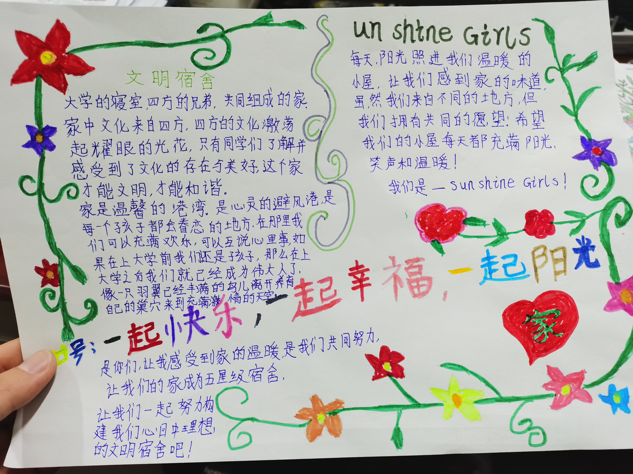 文明宿舍
大学的寝室四方的兄弟,共同组成的家
家中文化来自四方,四方的文化激荡
起耀眼的光花,只有同学们了解并
感受到了文化的存在与美好,这个家
才能文明,才能和谐。
家是温馨的港湾,是心灵的避风港,是
每一个孩子都会眷恋的地方,在那里我
们可以充满欢乐,可以互说心里事,如
果在上大学前我们还是孩子,那么在上
大学之后我们就已经成为伟大人了,
像一只羽翼已经丰满的鸟儿离开养育
自己的巢穴来到充满激情的天空
un shine Girls
每天,阳光照进我们温暖的
小屋,让我们感到家的味道,
虽然我们来自不同的地方,但
我们拥有共同的愿望:希望
我们的小屋每天都充满阳光,
笑声和温暖!
我们是—sunshine Girls!
家
口号:一起快乐,一起幸福,一起阳光
是你们,让我感受到家的温暖是我们共同努力,
让我们的家成为五星级宿舍,
让我们一起努力构
建我们心目中理想
的文明宿舍吧!